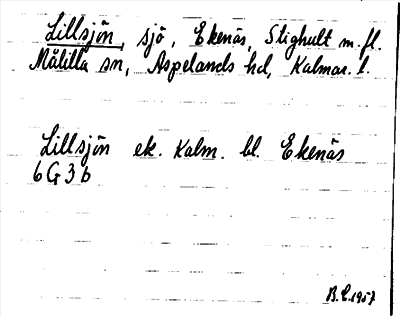 Lillsjön, sjö, Ekenäs, Stighult m.fl.
Målilla sn, Aspelands hd, Kalmar l.
Lillsjön ek. Kalm. bl. Ekenäs
6G3b
B.E.1957